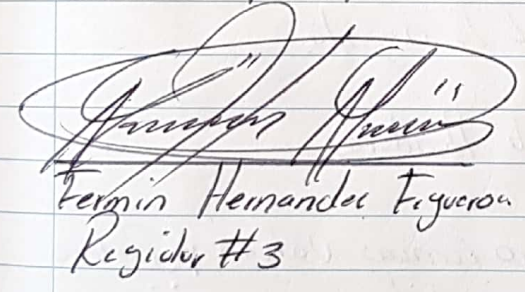 Fermin Hernandez Figueroa
Regidor #3